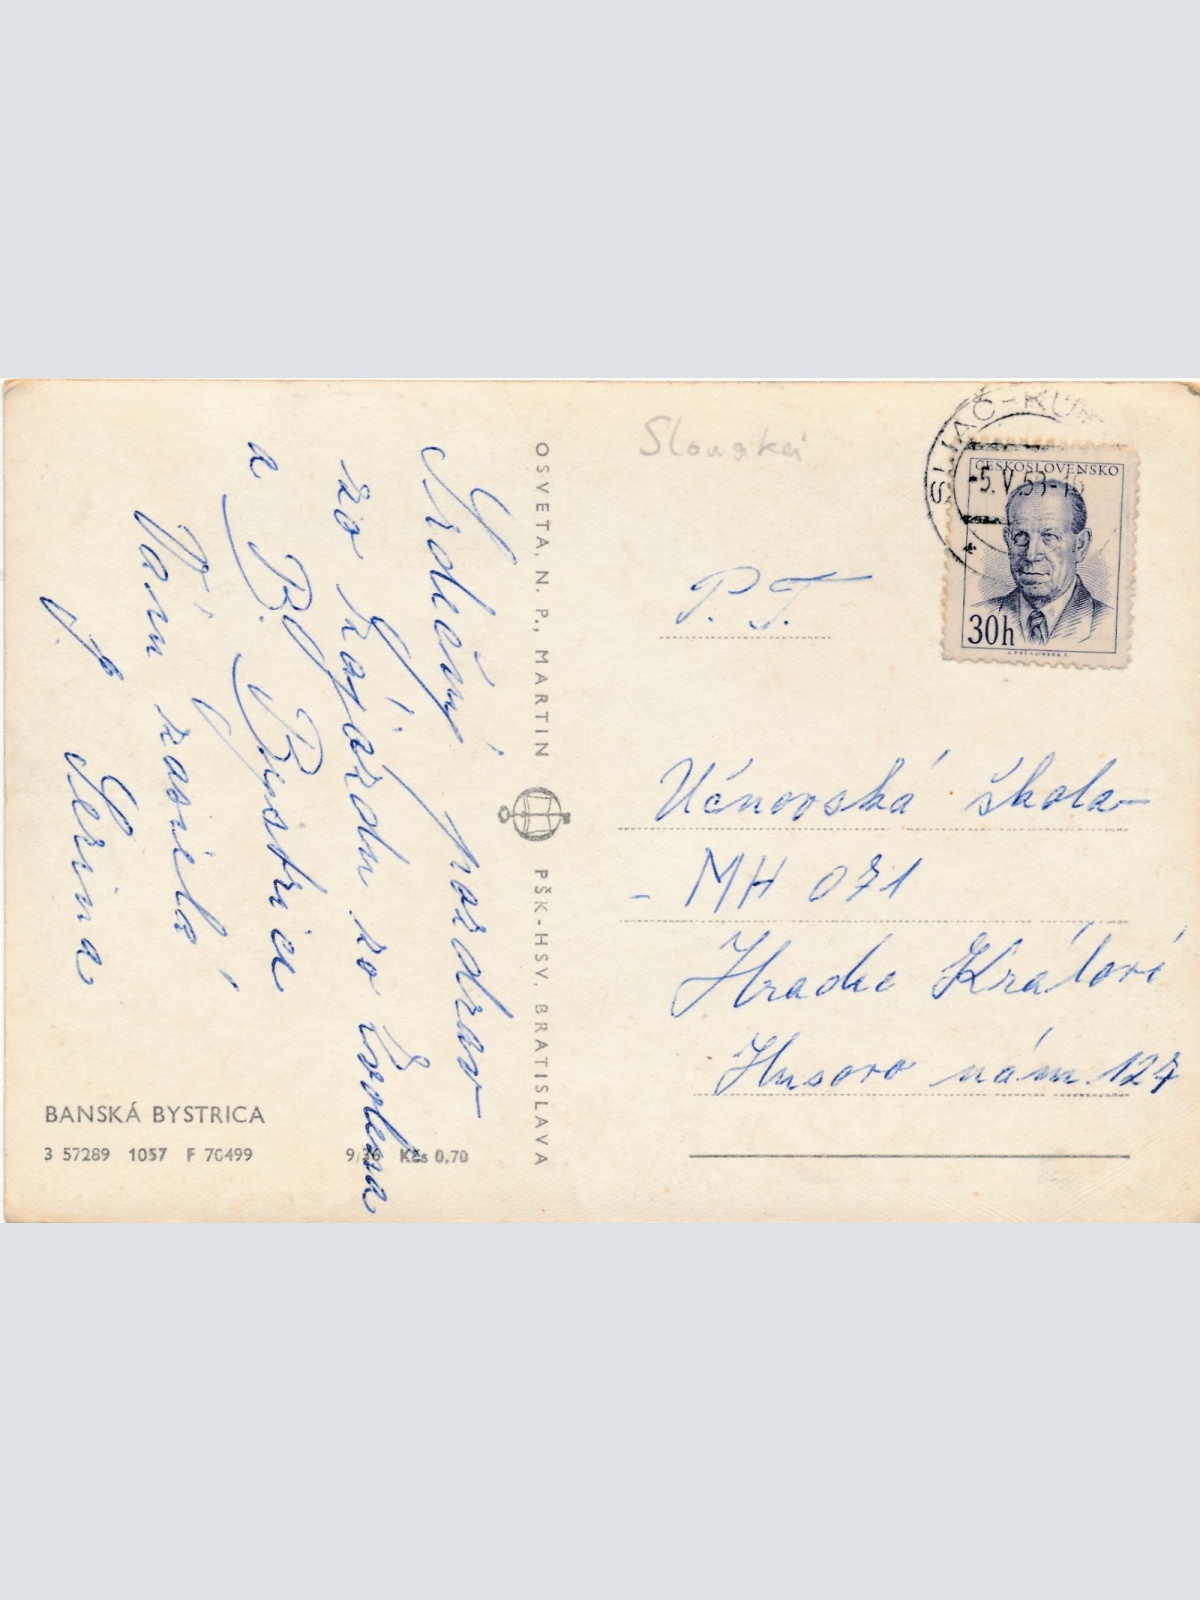 Srdečný pozdrav
zo zájazdu zo Zvolena
a B. Bystrice
Vám zasiela
J. Serina
OSVETA, N. P., MARTIN
PŠK-HSV, BRATISLAVA
BANSKÁ BYSTRICA
3 57289 1057 F 70499
Kčs 0,70
SLIAČ-KÚP
-5.V.58-16
ČESKOSLOVENSKO
30h
P. T.
Učnovská škola-
- MH 071
Hradec Králové
Husovo nám. 127